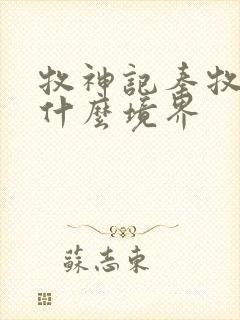 牧神記秦牧
什麼境界
蘇志東